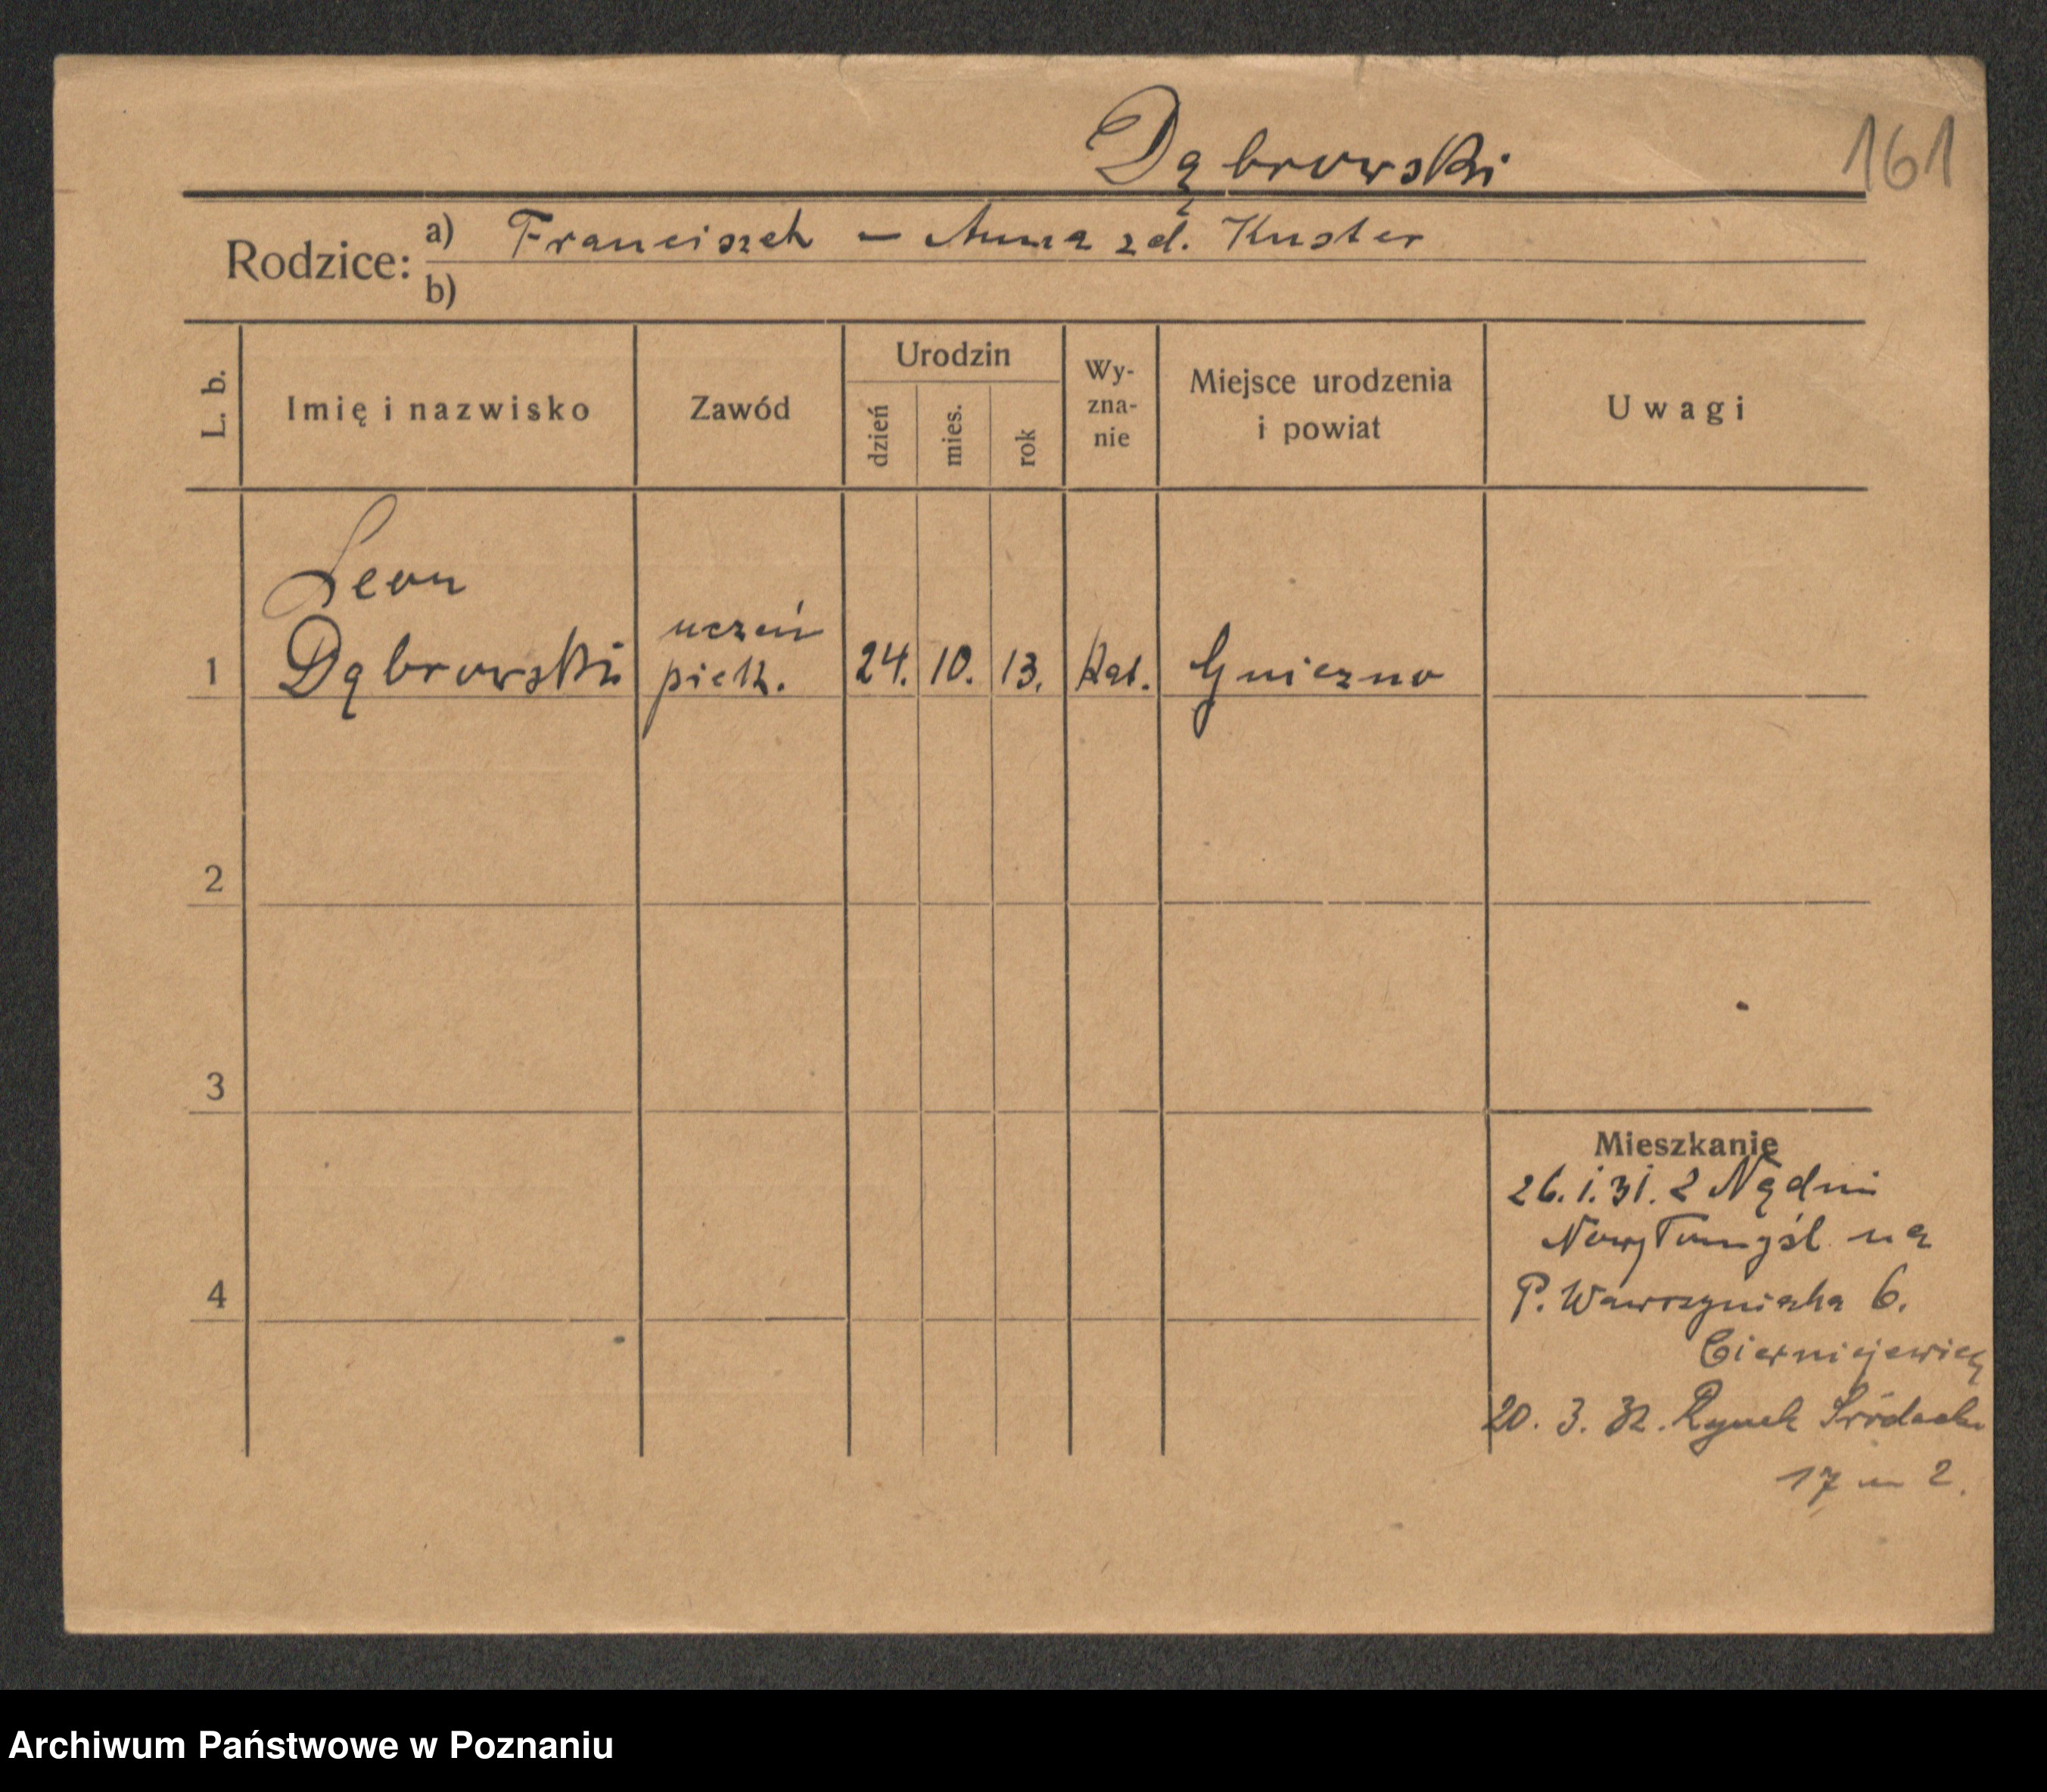 Dąbrowski
161
Rodzice:
a) Franciszek – Anna zd. Kuster
b)
L. b.
Imię i nazwisko
Zawód
Urodzin
dzień
mies.
rok
Wy-
zna-
nie
Miejsce urodzenia
i powiat
Uwagi
Leon
1 Dąbrowski uczeń piek. 24. 10. 13. kat. Gniezno
2
3
4
Mieszkanie
26. 1. 31. z Nądni
Nowy Tomyśl na
P. Wawrzyniaka 6.
20. 3. 32. Rynek Śródecki
17 m 2.
Archiwum Państwowe w Poznaniu